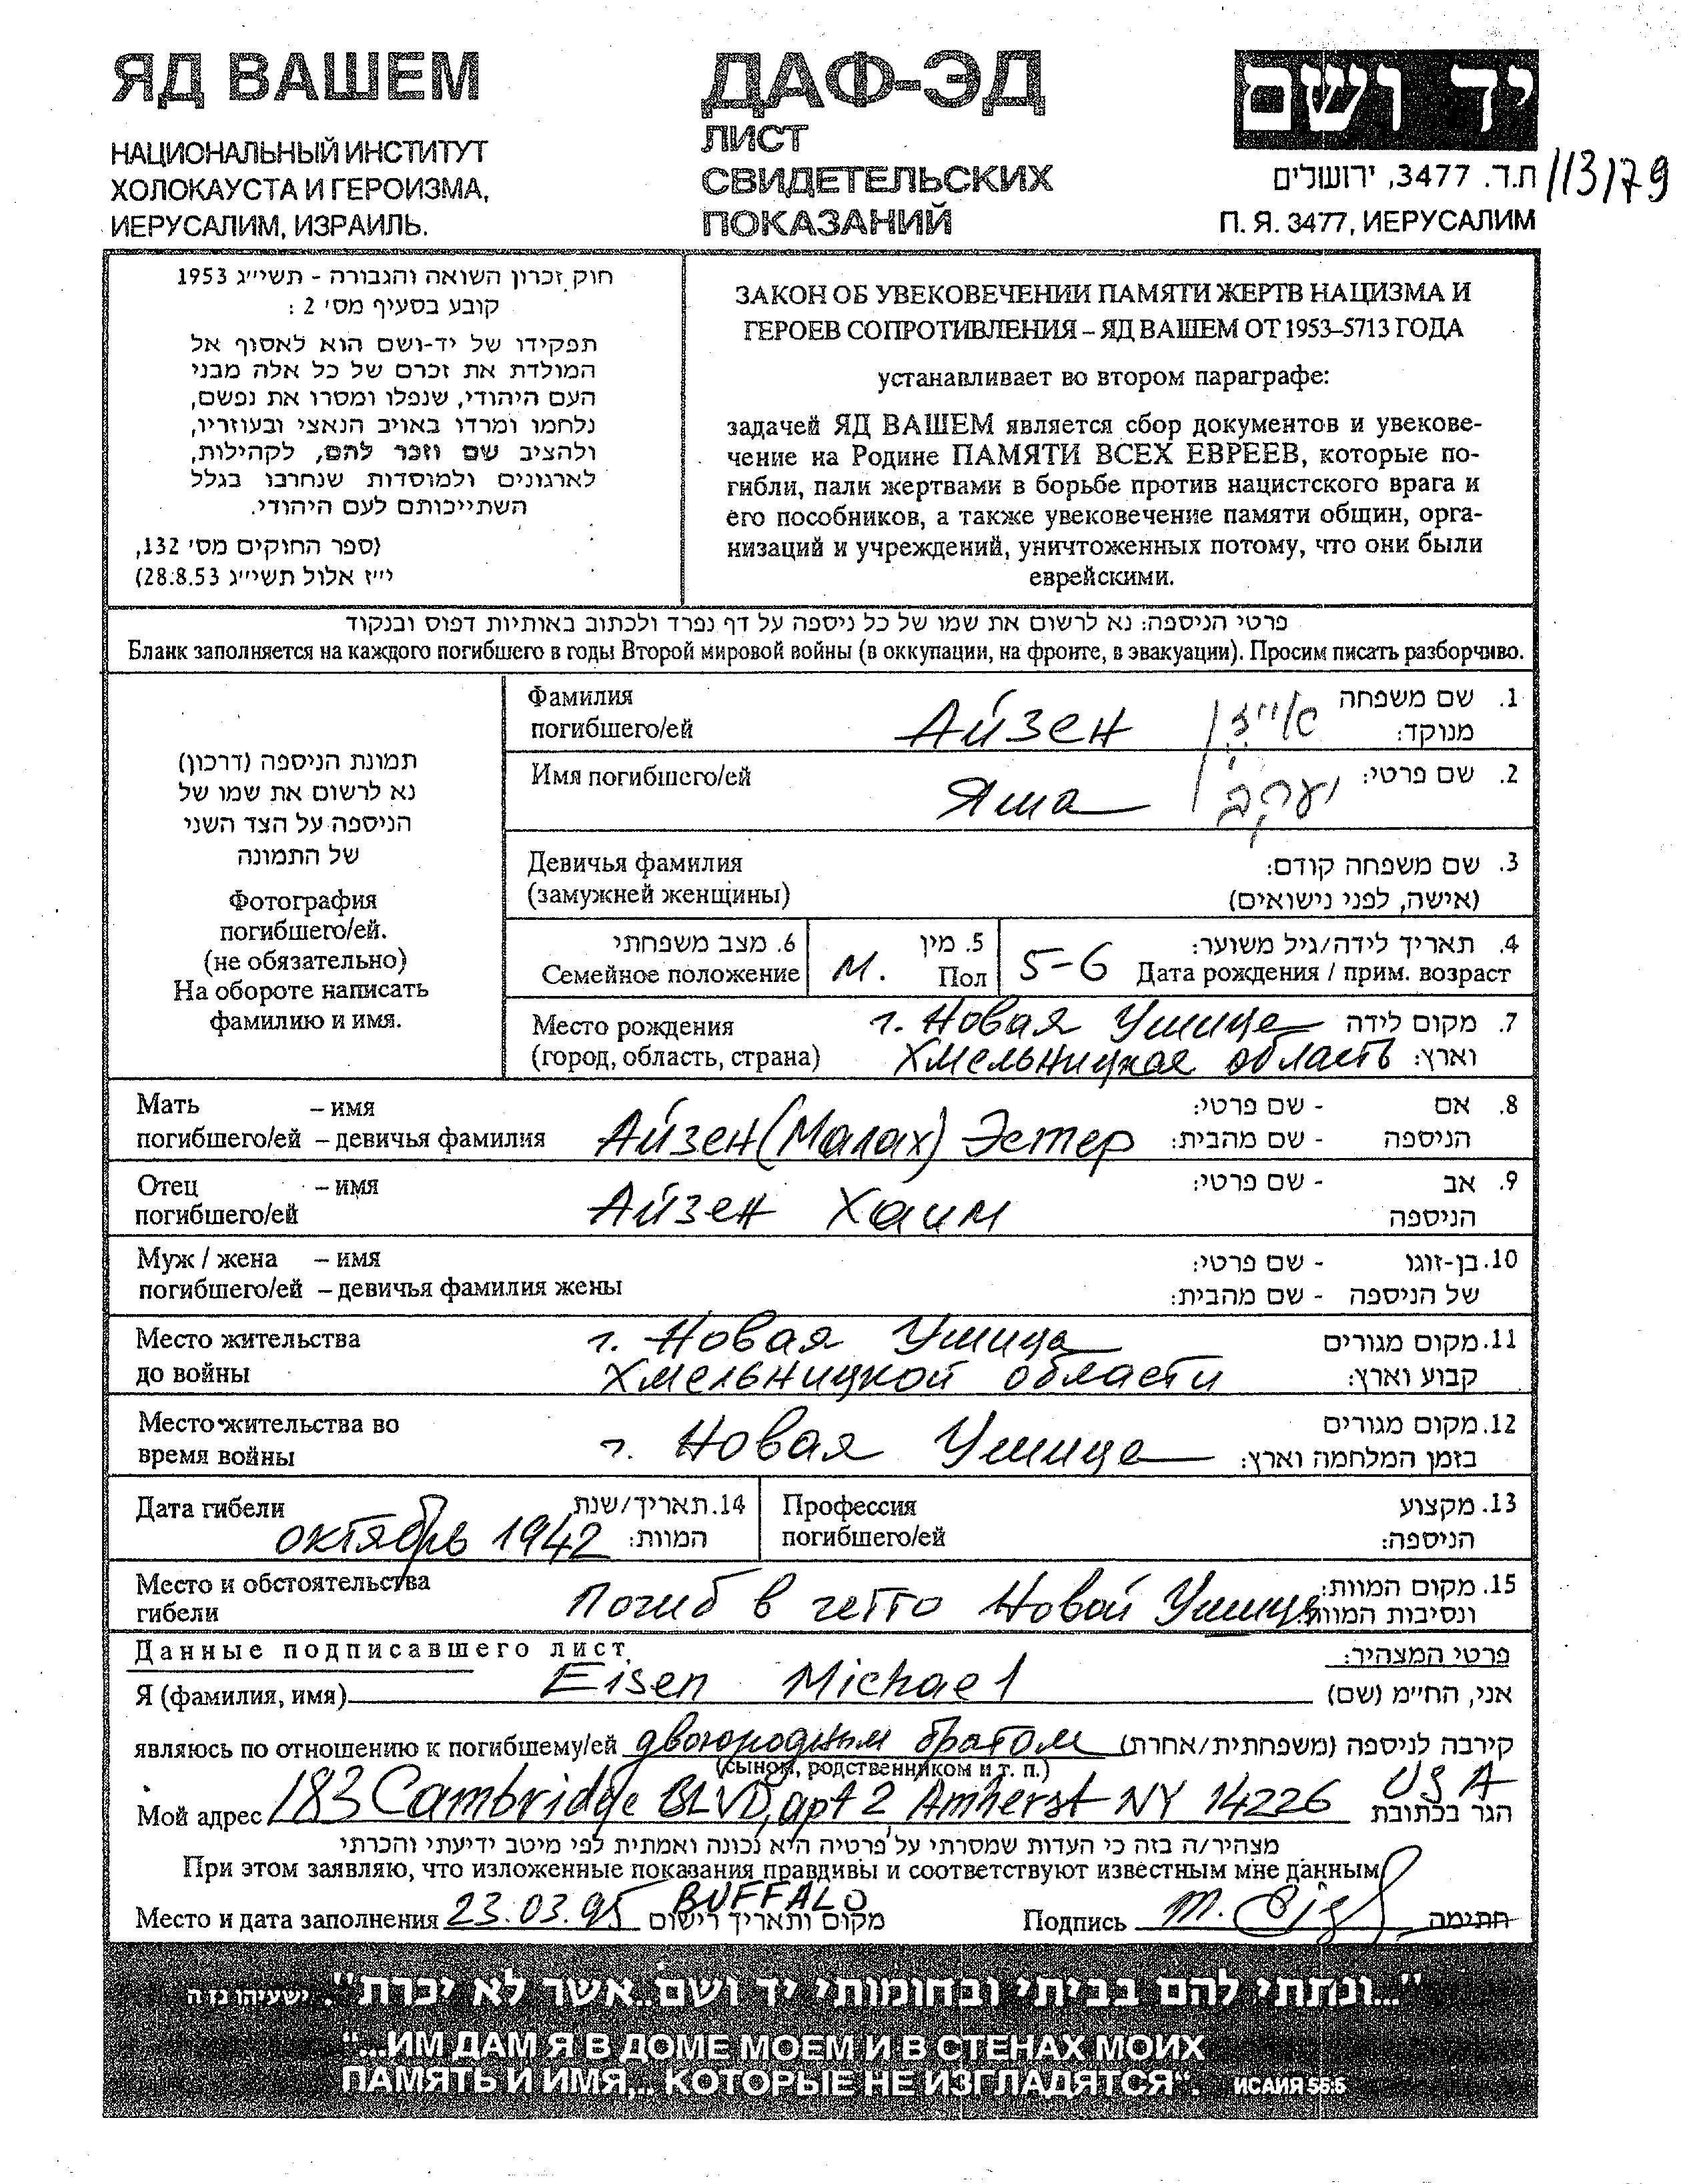 ЯД ВАШЕМ
НАЦИОНАЛЬНЫЙ ИНСТИТУТ
ХОЛОКАУСТА И ГЕРОИЗМА,
ИЕРУСАЛИМ, ИЗРАИЛЬ.
ДАФ-ЭД
ЛИСТ
СВИДЕТЕЛЬСКИХ
ПОКАЗАНИЙ
יד ושם
ת.ד. 3477, ירושלים
113/79
П. Я. 3477, ИЕРУСАЛИМ
חוק זכרון השואה והגבורה - תשי״ג 1953
קובע בסעיף מס׳ 2 :
תפקידו של יד-ושם הוא לאסוף אל
המולדת את זכרם של כל אלה מבני
העם היהודי, שנפלו ומסרו את נפשם,
נלחמו ומרדו באויב הנאצי ובעוזריו,
ולהציב שם וזכר להם, לקהילות,
לארגונים ולמוסדות שנחרבו בגלל
השתייכותם לעם היהודי.
(ספר החוקים מס׳ 132,
י״ז אלול תשי״ג 28.8.53)
ЗАКОН ОБ УВЕКОВЕЧЕНИИ ПАМЯТИ ЖЕРТВ НАЦИЗМА И
ГЕРОЕВ СОПРОТИВЛЕНИЯ – ЯД ВАШЕМ ОТ 1953–5713 ГОДА
устанавливает во втором параграфе:
задачей ЯД ВАШЕМ является сбор документов и увекове-
чение на Родине ПАМЯТИ ВСЕХ ЕВРЕЕВ, которые по-
гибли, пали жертвами в борьбе против нацистского врага и
его пособников, а также увековечение памяти общин, орга-
низаций и учреждений, уничтоженных потому, что они были
еврейскими.
פרטי הניספה: נא לרשום את שמו של כל ניספה על דף נפרד ולכתוב באותיות דפוס ובנקוד
Бланк заполняется на каждого погибшего в годы Второй мировой войны (в оккупации, на фронте, в эвакуации). Просим писать разборчиво.
תמונת הניספה (דרכון)
נא לרשום את שמו של
הניספה על הצד השני
של התמונה
Фотография
погибшего/ей.
(не обязательно)
На обороте написать
фамилию и имя.
Фамилия
погибшего/ей
Айзен
אייזן
1. שם משפחה
מנוקד:
Имя погибшего/ей
Яша
יעקב
2. שם פרטי:
Девичья фамилия
(замужней женщины)
3. שם משפחה קודם:
(אישה, לפני נישואים)
6. מצב משפחתי
Семейное положение
М.
5. מין
Пол
5-6
4. תאריך לידה/גיל משוער:
Дата рождения / прим. возраст
Место рождения
(город, область, страна)
г. Новая Ушице
Хмельницкая область
7. מקום לידה
וארץ:
Мать – имя
погибшего/ей – девичья фамилия
Айзен (Малах) Эстер
8. אם - שם פרטי:
הניספה - שם מהבית:
Отец – имя
погибшего/ей
Айзен Хаим
9. אב - שם פרטי:
הניספה
Муж / жена – имя
погибшего/ей – девичья фамилия жены
10. בן-זוגו - שם פרטי:
של הניספה - שם מהבית:
Место жительства
до войны
г. Новая Ушица
Хмельницкой области
11. מקום מגורים
קבוע וארץ:
Место жительства во
время войны
г. Новая Ушице
12. מקום מגורים
בזמן המלחמה וארץ:
Дата гибели
октябрь 1942
14. תאריך/שנת
המוות:
Профессия
погибшего/ей
13. מקצוע
הניספה:
Место и обстоятельства
гибели
Погиб в гетто Новой Ушице
15. מקום המוות:
ונסיבות המוות:
Данные подписавшего лист
פרטי המצהיר:
Я (фамилия, имя) Eisen Michael
אני, החיימ (שם)
являюсь по отношению к погибшему/ей двоюродным братом
קירבה לניספה (משפחתית/אחרת)
(сыном, родственником и т. п.)
Мой адрес 183 Cambridge BLVD, apt 2 Amherst NY 14226 USA
הגר בכתובת
מצהיר/ה בזה כי העדות שמסרתי על פרטיה היא נכונה ואמתית לפי מיטב ידיעתי והכרתי
При этом заявляю, что изложенные показания правдивы и соответствуют известным мне данным
Место и дата заполнения 23.03.95 BUFFALO
מקום ותאריך רישום
Подпись
חתימה
"...ונתתי להם בביתי ובחומותי יד ושם...אשר לא יכרת". ישעיהו נה ה
“...ИМ ДАМ Я В ДОМЕ МОЕМ И В СТЕНАХ МОИХ
ПАМЯТЬ И ИМЯ... КОТОРЫЕ НЕ ИЗГЛАДЯТСЯ“. ИСАИЯ 55:5